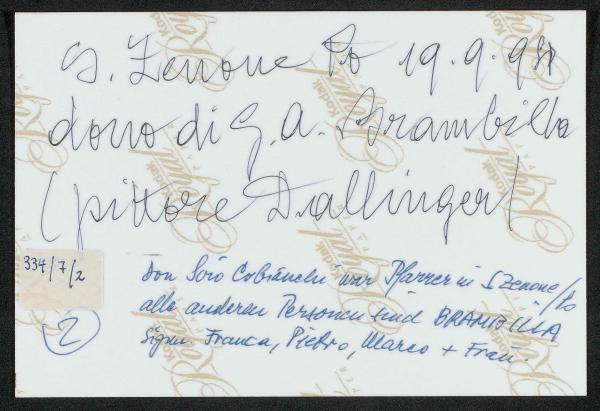 S. Zenone Po 19.9.98
dono di G. A. Brambilla
(pittore Dallinger)
334/7/2
Don Siro Cobianchi war Pfarrer in S Zenone/Po
alle anderen Personen sind BRAMBILLA
Sign. Franca, Pietro, Marco + Frau.
2
Kodak
Royal
PAPER